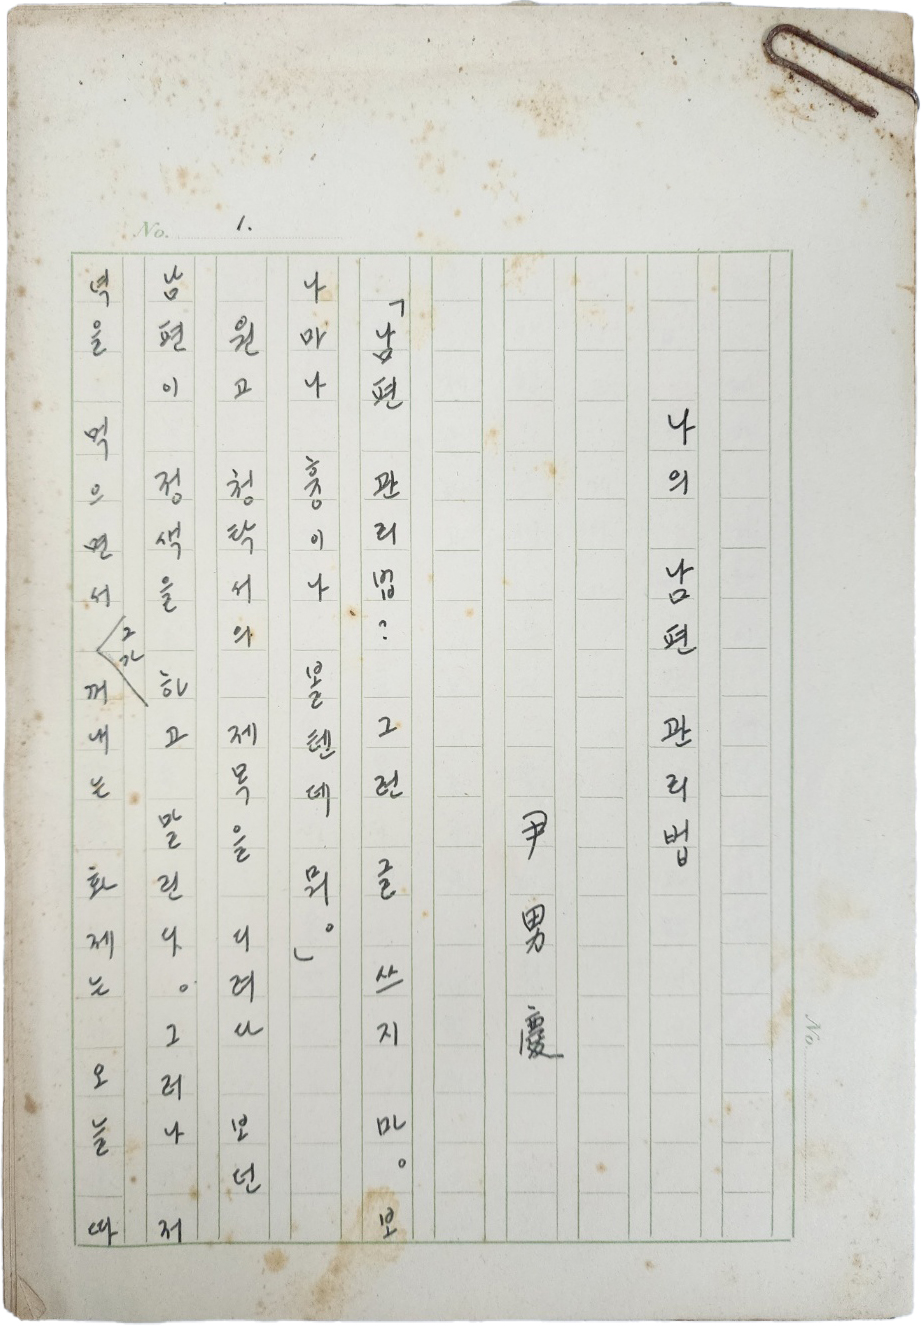 No. 1.
나의 남편 관리법
尹男慶
「남편 관리법? 그런 글 쓰지 마。 보
나마나 흉이나 볼텐데 뭐。」
원고 청탁서의 제목을 디려다 보던
남편이 정색을 하고 말린다。그러나 저
녁을 먹으면서 그가 꺼내는 화제는 오늘따
No.